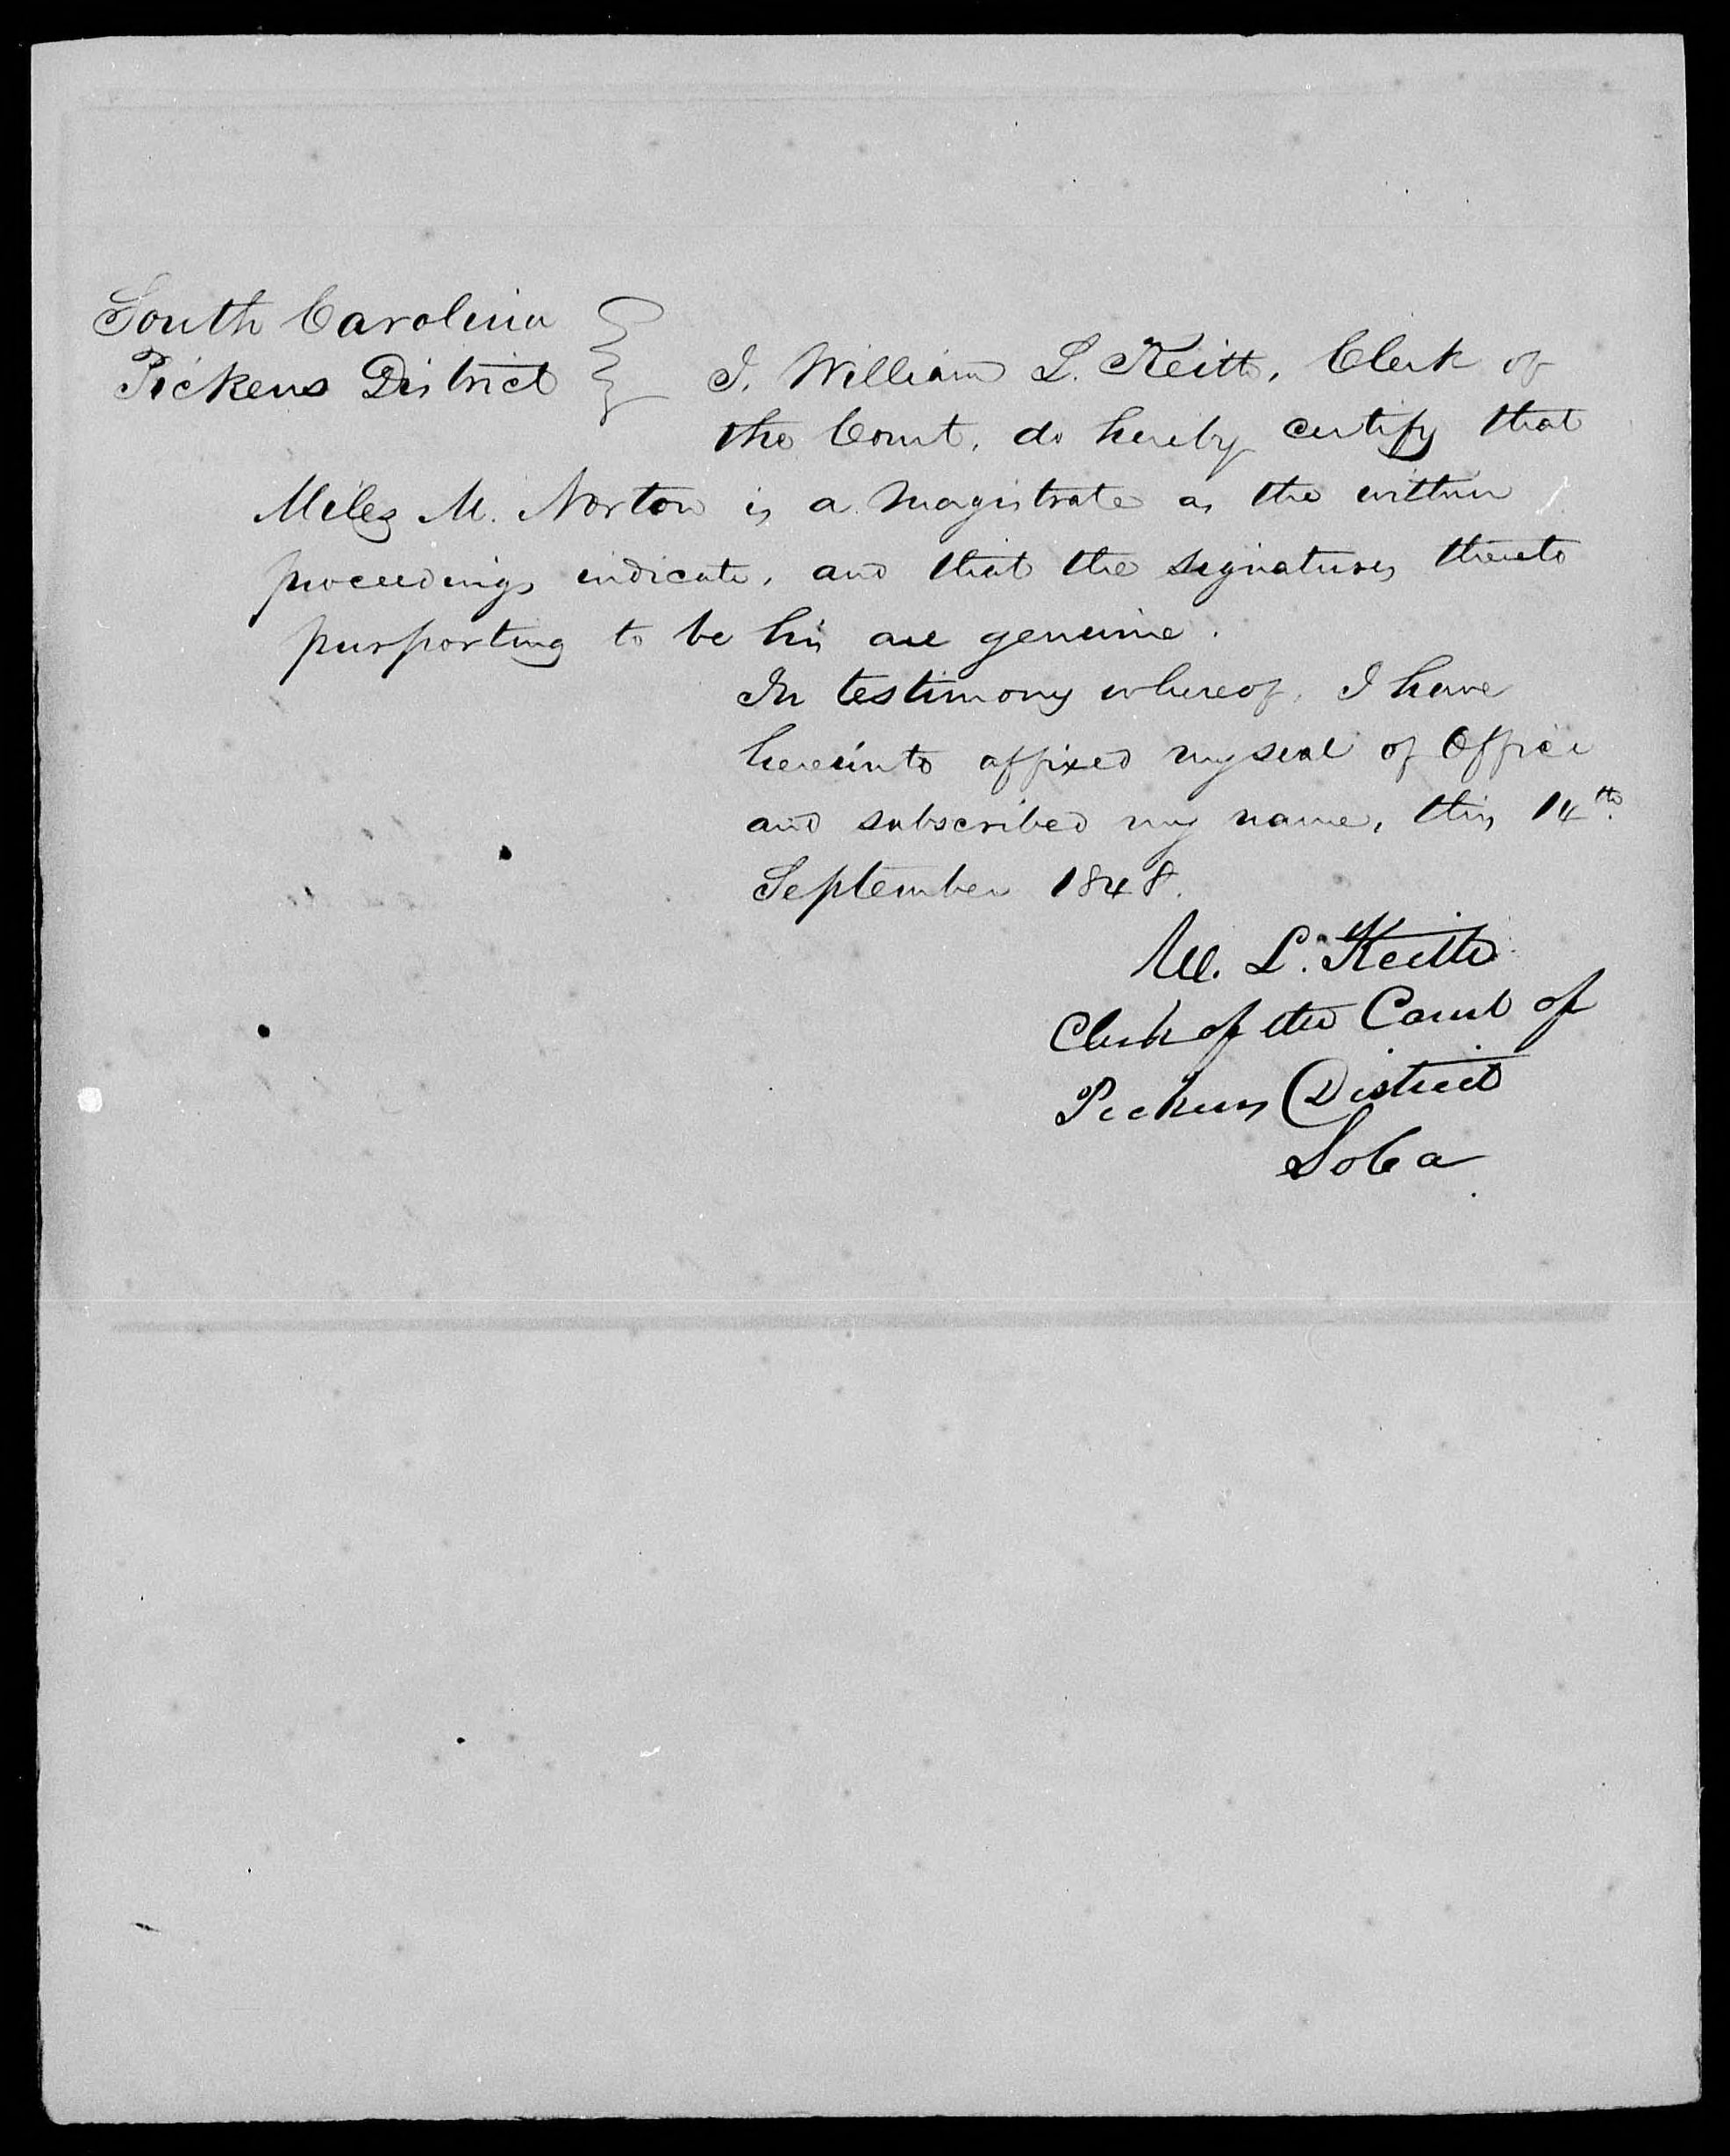 South Carolina
Pickens District
I, William L. Keith, Clerk of
the Court, do hereby certify that
Miles M. Norton is a Magistrate as the within
proceedings indicate, and that the signatures thereto
purporting to be his are genuine.
In testimony whereof, I have
hereunto affixed my seal of Office
and subscribed my name, this 14th.
September 1848.
W. L. Keith
Clerk of the Court of
Pickens District
So Ca